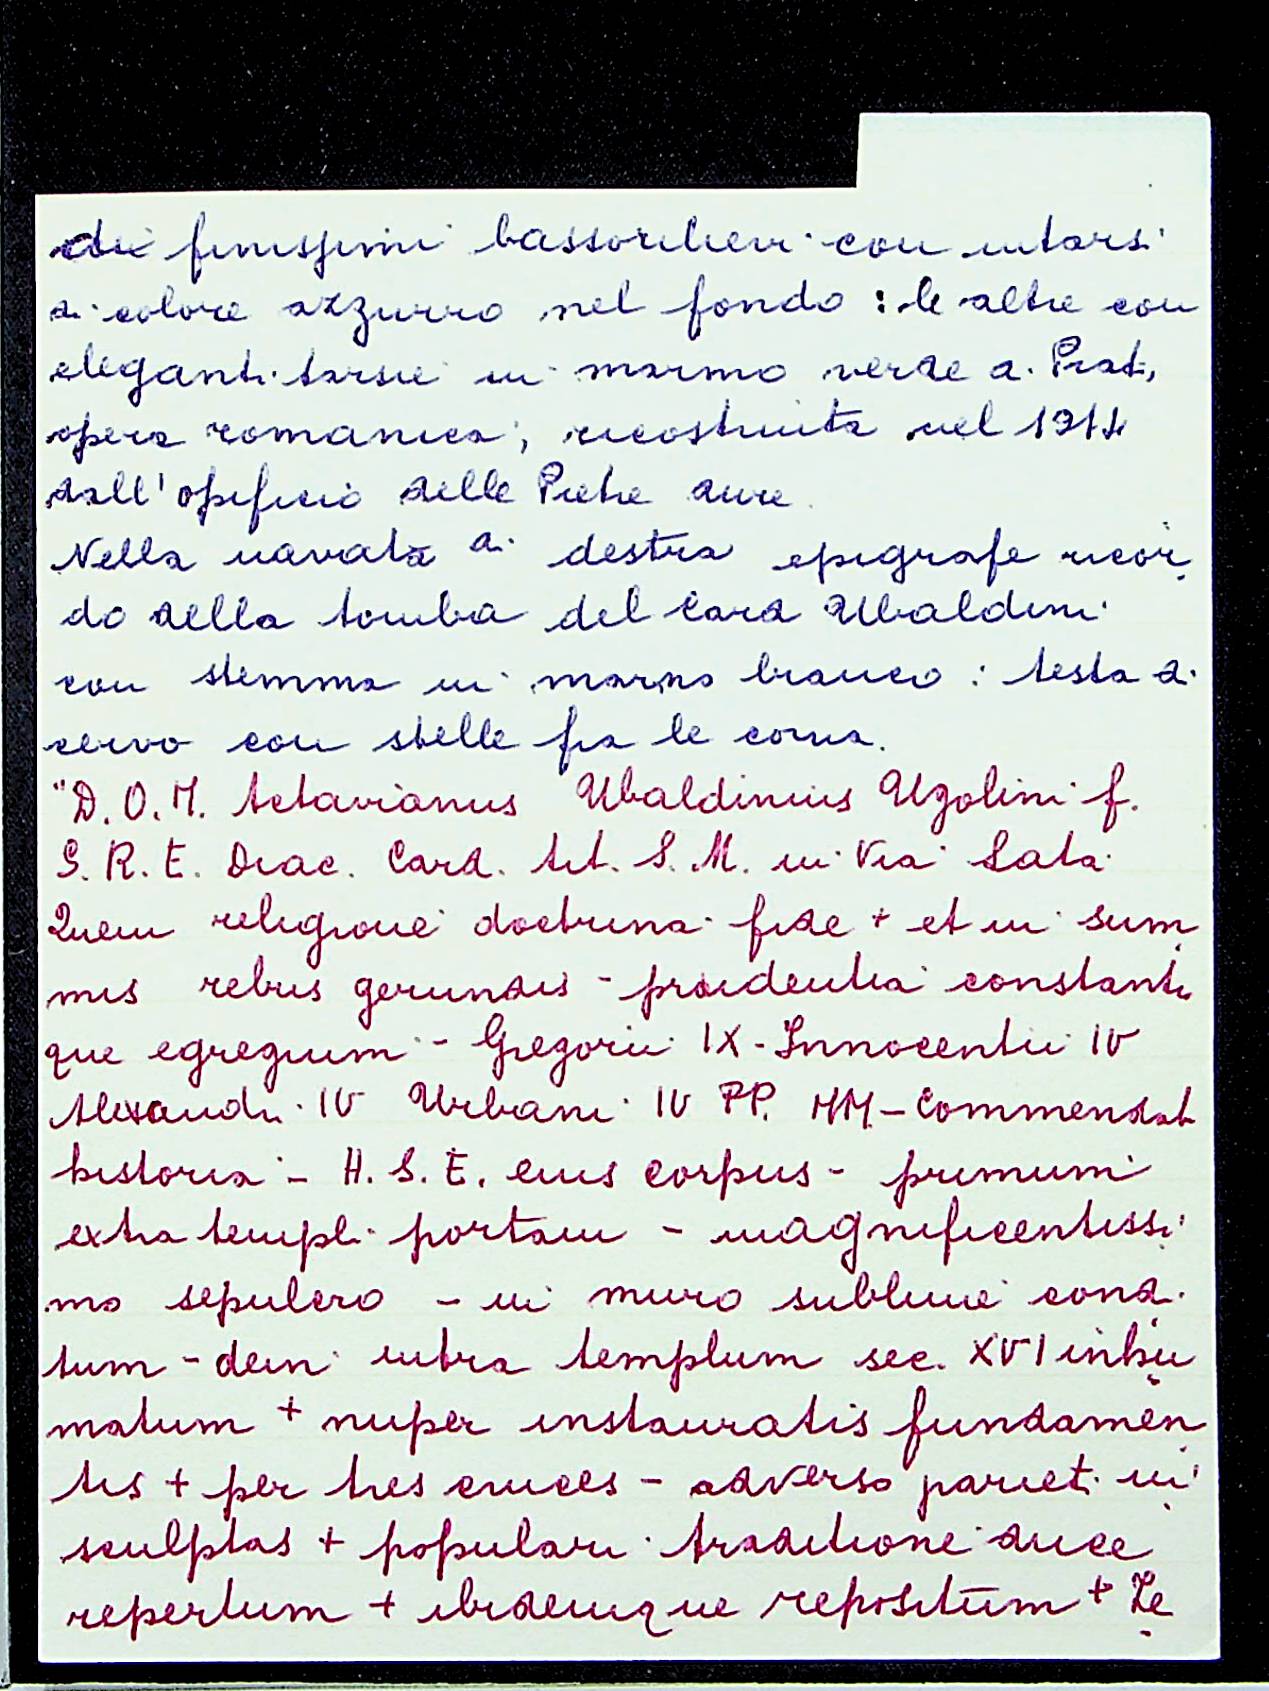 dei finissimi bassorilievi con intarsi
di colore azzurro nel fondo : le altre con
eleganti tarsie in marmo verde di Prato,
opera romanica, ricostruita nel 1914
dall'opificio delle Pietre dure.
Nella navata di destra epigrafe ricor
do della tomba del Card Ubaldini
con stemma in marmo bianco : testa di
cervo con stelle fra le corna.
"D. O. M. Actavianus Ubaldinius Ugolini f.
S. R. E. Diac. Card. tit. S. M. in Via Lata
Quem religione doctrina fide + et in sum
mis rebus gerundis - prudentia constanti
que egregium - Gregorii IX - Innocentii IV
Alexandri IV Urbani IV PP. MM - Commendat
historia - H. S. E. eius corpus - primum
extra templi portam - magnificentissi
mo sepulcro - in muro sublimi condi
tum - dein intra templum sec. XVI inhu
matum + nuper instauratis fundamen
tis + per tres cruces - adverso parieti in
sculptas + populari traditione duce
repertum + ibidemque repositum + Ze